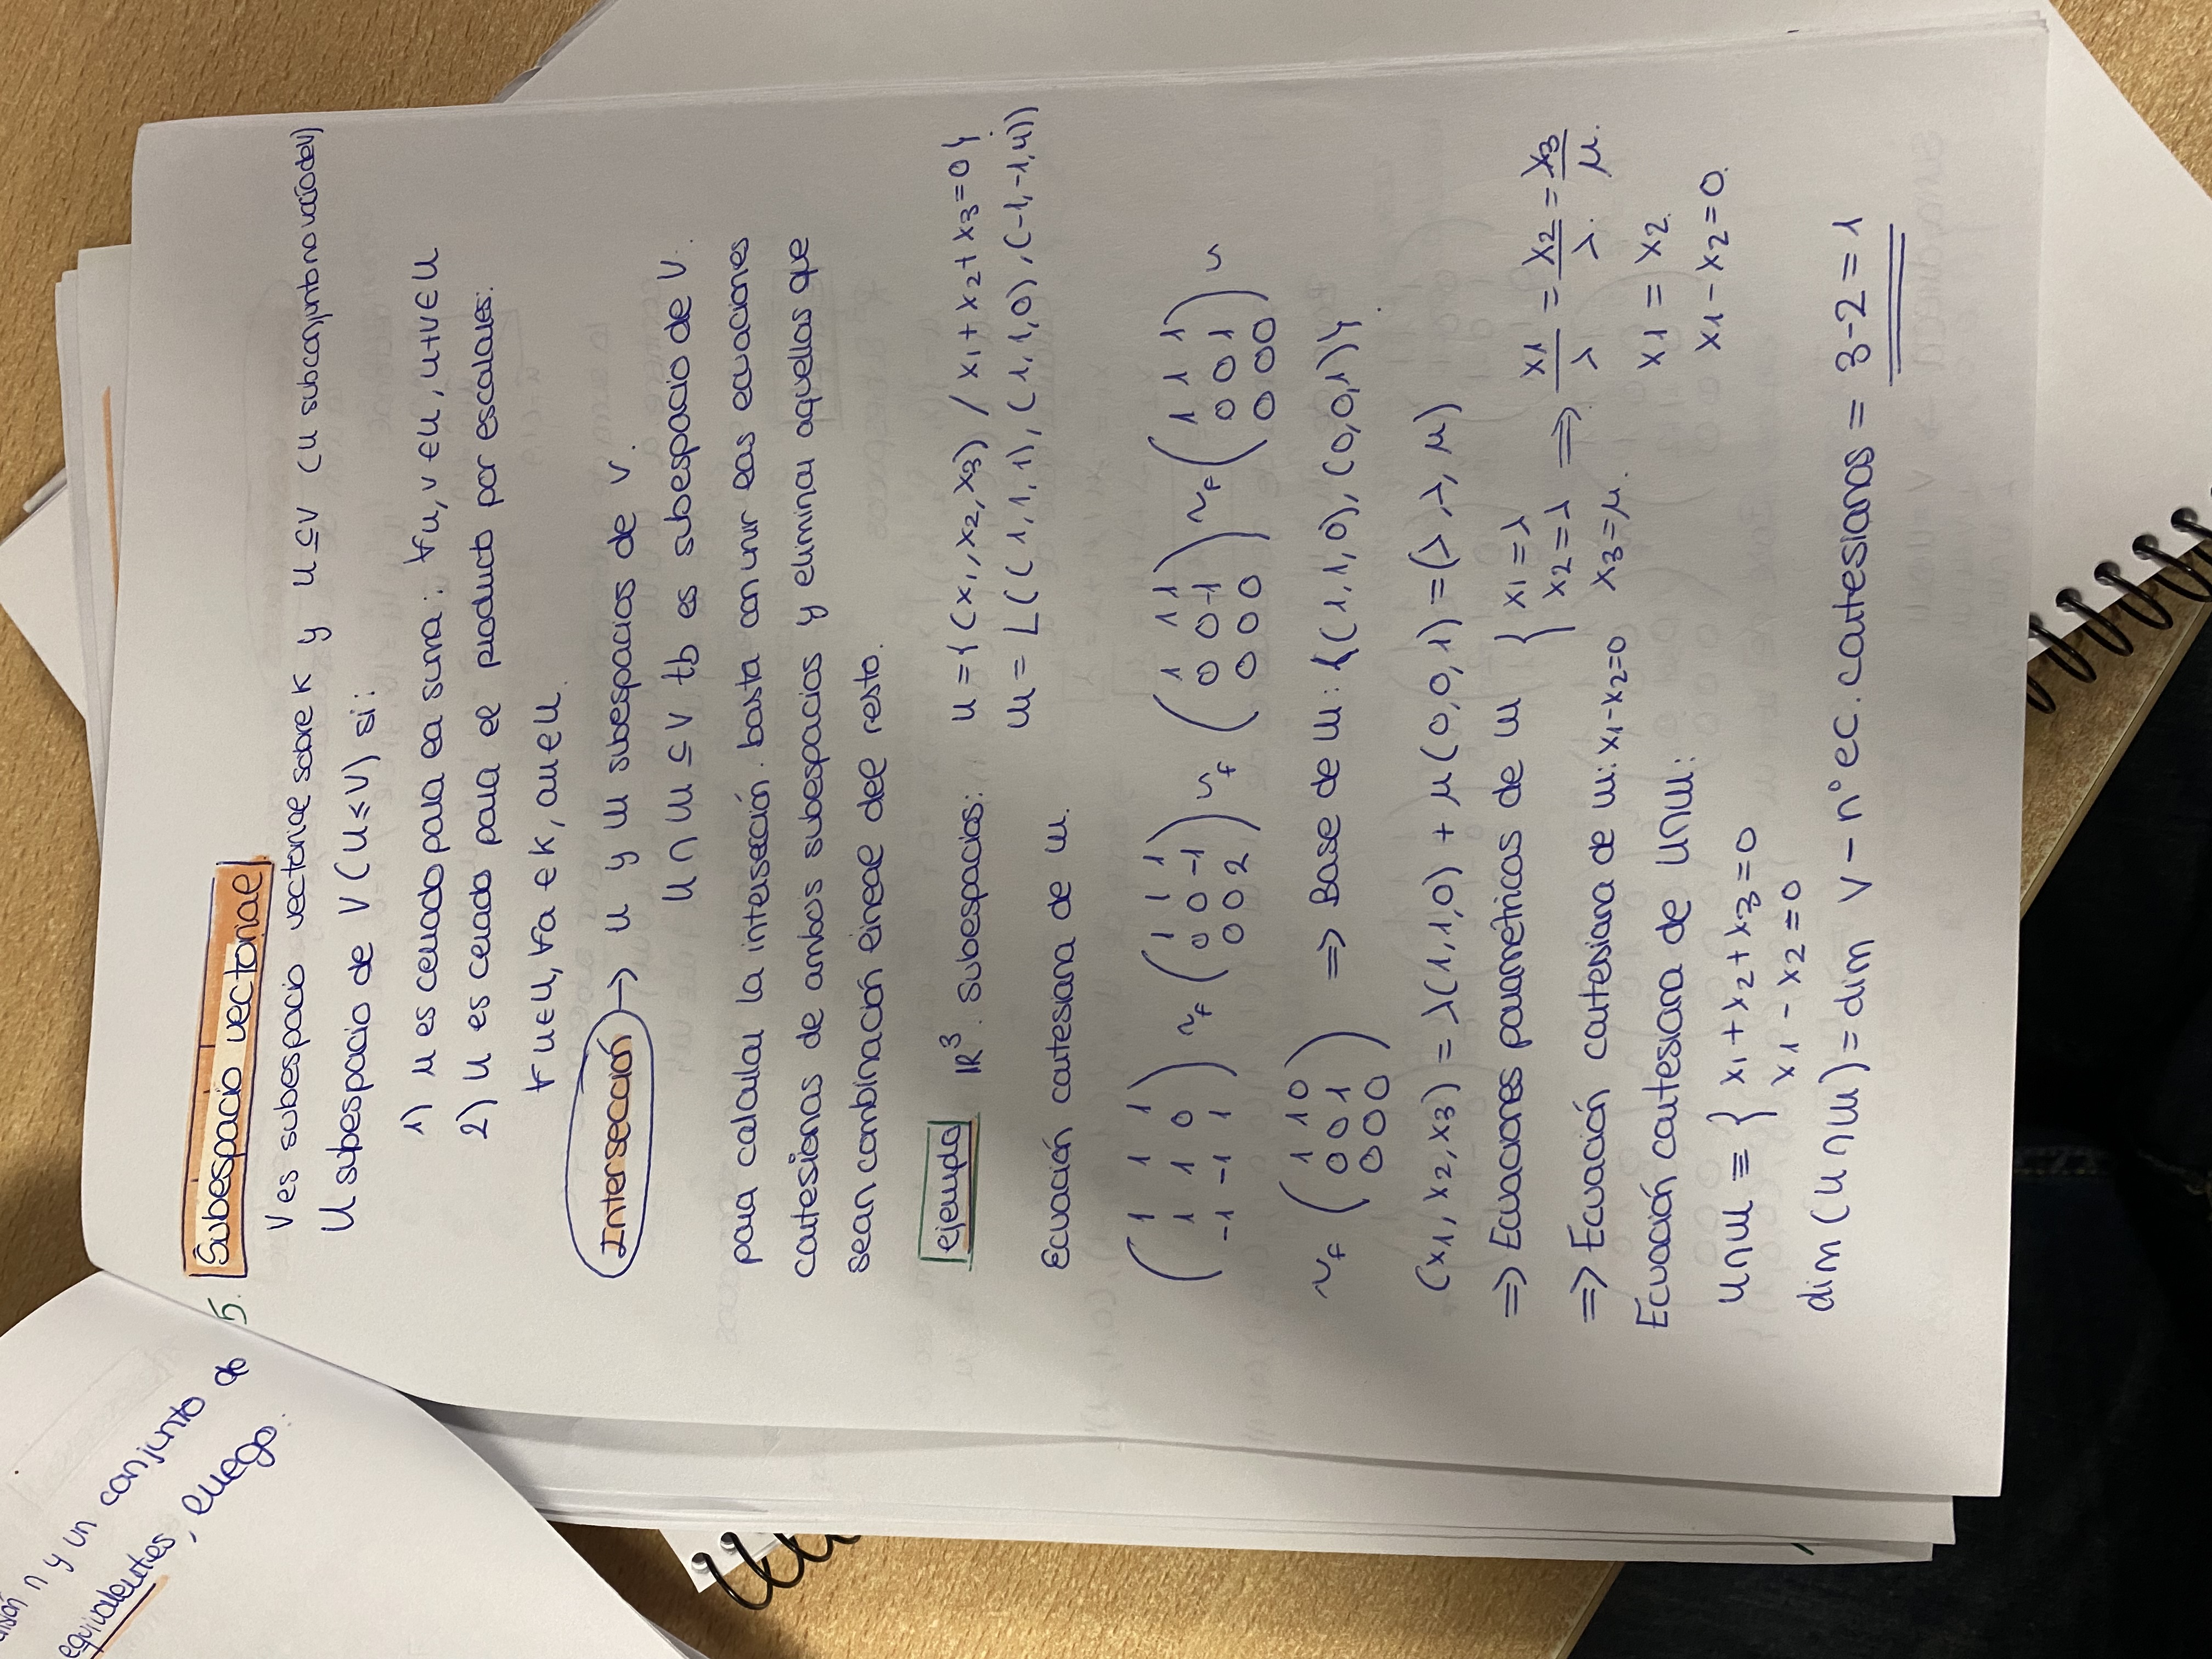 n y un conjunto de
equivalentes, luego
5. Subespacio vectorial
V es subespacio vectorial sobre K y U ⊆ V (U subconjunto no vacío de V)
U subespacio de V (U ≤ V) si:
1) U es cerrado para la suma: ∀u, v ∈ U, u+v ∈ U
2) U es cerado para el producto por escalares:
∀ u ∈ U, ∀a ∈ K, au ∈ U
Intersección → U y W subespacios de V.
U ∩ W ⊆ V tb es subespacio de V.
para calcular la intersección. basta con unir las ecuaciones
cartesianas de ambos subespacios y eliminar aquellas que
sean combinación lineal del resto.
ejemplo ℝ³. Subespacios: U = {(x₁, x₂, x₃) / x₁ + x₂ + x₃ = 0}
W = L((1, 1, 1), (1, 1, 0), (-1, -1, 4))
Ecuación cartesiana de W.
(1 1 1; 1 1 0; -1 -1 1) ~f (1 1 1; 0 0 -1; 0 0 2) ~f (1 1 1; 0 0 -1; 0 0 0) ~f (1 1 1; 0 0 1; 0 0 0) ~
~f (1 1 0; 0 0 1; 0 0 0) ⇒ Base de W: {(1, 1, 0), (0, 0, 1)}
(x1, x2, x3) = λ(1, 1, 0) + μ(0, 0, 1) = (λ, λ, μ)
⇒ Ecuaciones parametricas de W { x1 = λ
x2 = λ ⇒ x1/λ = x2/λ = x3/μ.
⇒ Ecuación cartesiana de W: x1 - x2 = 0 x3 = μ.
x1 = x2
Ecuación cartesiana de U∩W:
x1 - x2 = 0.
U∩W ≡ { x₁ + x₂ + x3 = 0
x1 - x2 = 0
dim (U∩W) = dim V - nº ec. cartesianas = 3-2 = 1